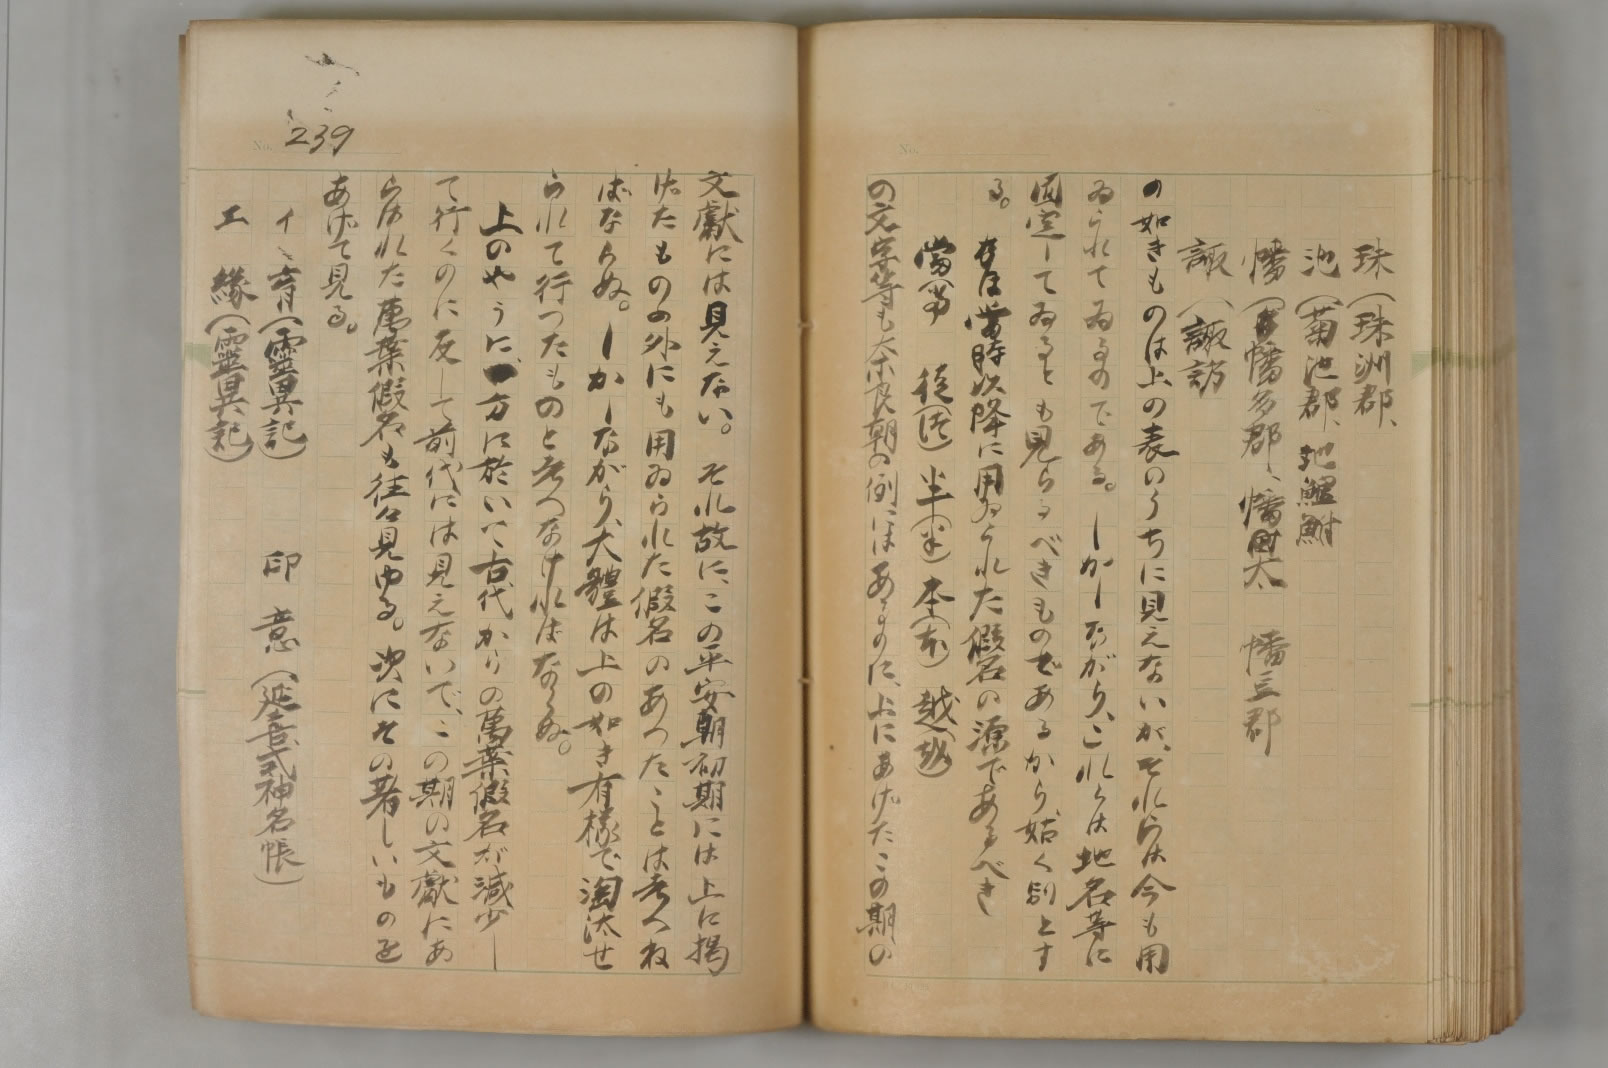 珠（珠洲郡、
池（菊池郡、地鱸鮒
幡（幡多郡、幡太　幡三郡
諏（諏訪
の如きものは上の表のうちに見えないが、それらは今も用
ゐられてゐるのである。しかしながら、これらは地名等に
固定してゐるとも見らるべきものであるから姑く別とす
る。なほ當時以降に用ゐられた假名の源であるべき
當（　徒（　半（　本（　越（
の文字等も奈良朝の例にはあるのに、上にあげたこの期の
239
文獻には見えない。それ故に、この平安朝初期には上に掲
げたものの外にも用ゐられた假名のあつたことは考へね
ばならぬ。しかしながら、大體は上の如き有樣で淘汰せ
られて行つたものと考へなければならぬ。
上のやうに、一方に於いて古代からの萬葉假名が減少し
て行くのに反して前代には見えないで、この期の文獻にあ
らはれた萬葉假名も往々見ゆる。次にその著しいものを
あげて見る。
イ、育（靈異記）　印　意（延喜式神名帳）
エ　緣（靈異記）